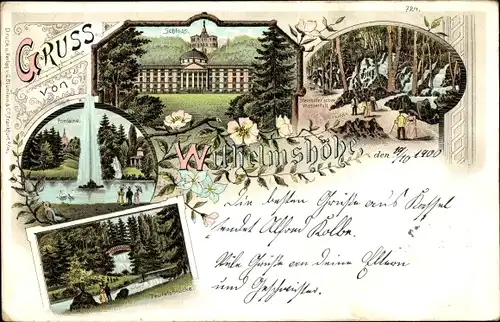 7214.
Gruss
von
Schloss.
Steinhöfer'scher
Wasserfall
Fontaine.
Wilhelmshöhe, den 14/10 1900
Teufelsbrücke
Die besten Grüße aus Kassel
sendet Alfred Kolbe.
Viele Grüße an deine Eltern
und Geschwister.